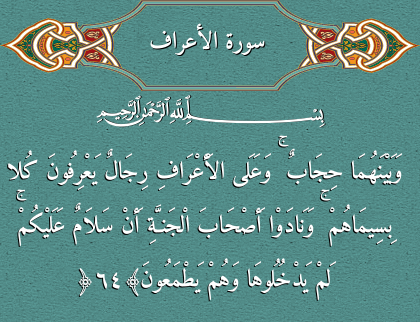 سورة الأعراف
بِسْمِ اللَّهِ الرَّحْمَٰنِ الرَّحِيمِ
وَبَيْنَهُمَا حِجَابٌ ۚ وَعَلَى الْأَعْرَافِ رِجَالٌ يَعْرِفُونَ كُلا
بِسِيمَاهُمْ ۚ وَنَادَوْا أَصْحَابَ الْجَنَّةِ أَنْ سَلَامٌ عَلَيْكُمْ ۚ
لَمْ يَدْخُلُوهَا وَهُمْ يَطْمَعُونَ ﴿٤٦﴾